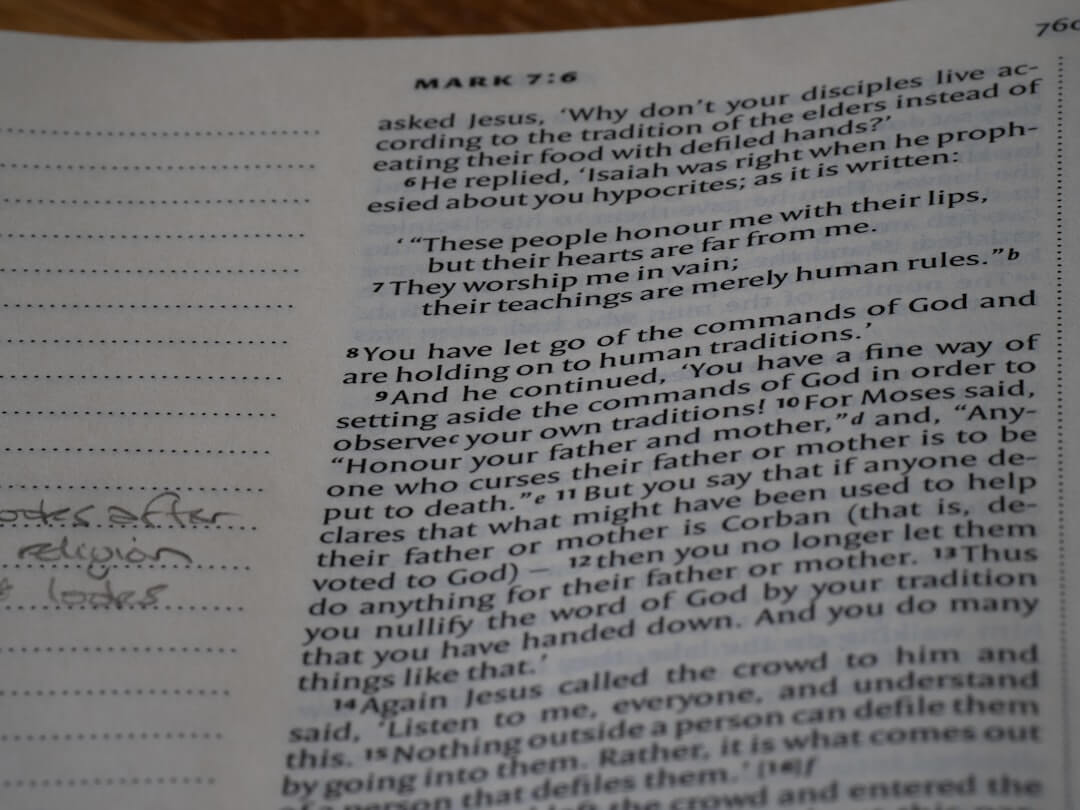 760
MARK 7:6
asked Jesus, ‘Why don’t your disciples live ac-
cording to the tradition of the elders instead of
eating their food with defiled hands?’
6 He replied, ‘Isaiah was right when he proph-
esied about you hypocrites; as it is written:
‘ “These people honour me with their lips,
but their hearts are far from me.
7 They worship me in vain;
their teachings are merely human rules.” b
8 You have let go of the commands of God and
are holding on to human traditions.’
9 And he continued, ‘You have a fine way of
setting aside the commands of God in order to
observe c your own traditions! 10 For Moses said,
“Honour your father and mother,” d and, “Any-
one who curses their father or mother is to be
put to death.” e 11 But you say that if anyone de-
clares that what might have been used to help
their father or mother is Corban (that is, de-
voted to God) – 12 then you no longer let them
do anything for their father or mother. 13 Thus
you nullify the word of God by your tradition
that you have handed down. And you do many
things like that.’
14 Again Jesus called the crowd to him and
said, ‘Listen to me, everyone, and understand
this. 15 Nothing outside a person can defile them
by going into them. Rather, it is what comes out
of a person that defiles them.’ [16] f
left the crowd and entered the
after
religion
looks